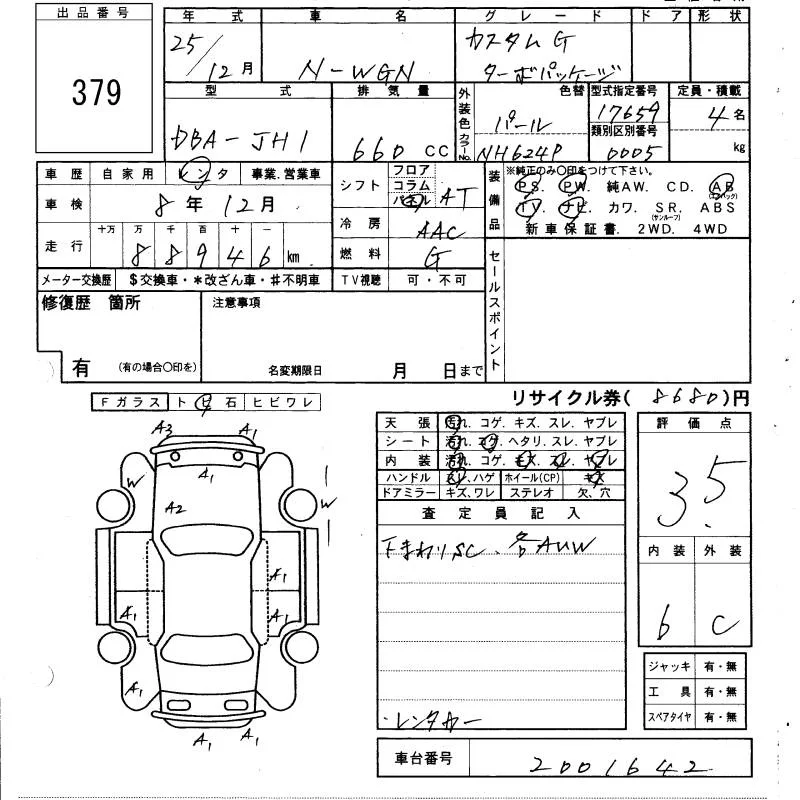 出品番号
379
年式 車名 グレード ドア 形状
25/12月 N-WGN カスタム G ターボパッケージ
型式 排気量 外装色 色替 型式指定番号 定員・積載
DBA-JH1 660 CC パール 17659 4名
カラーNo. NH624P 類別区別番号 0005 kg
車歴 自家用 レンタ 事業.営業車
車検 8年12月
走行 十万 万 千 百 十 一
8 8 9 4 6 km
メーター交換歴 $交換車・*改ざん車・#不明車
シフト フロア コラム パネル AT
冷房 AAC
燃料 G
TV視聴 可・不可
装備品 ※純正のみ〇印をつけて下さい。
PS. PW. 純AW. CD. AB (エアバック)
TV. ナビ. カワ. SR. (サンルーフ) ABS
新車保証書. 2WD. 4WD
セールスポイント
修復歴 箇所
有 (有の場合〇印を)
注意事項
名変期限日 月 日まで
リサイクル券( 8680 )円
Fガラス トビ石 ヒビワレ
A3 A1
A1
W W
A2
A1
A1 A1
A1
A1 A1
天張 汚れ. コゲ. キズ. スレ. ヤブレ
シート 汚れ. コゲ. ヘタリ. スレ. ヤブレ
内装 汚れ. コゲ. キズ. スレ. ヤブレ
ハンドル スレ, ハゲ ホイール(CP) キズ
ドアミラー キズ, ワレ ステレオ 欠, 穴
査定員記入
下まわりSC. 各AUW
・レンタカー
評価点
3.5
内装 外装
b C
ジャッキ 有・無
工具 有・無
スペアタイヤ 有・無
車台番号 2001642